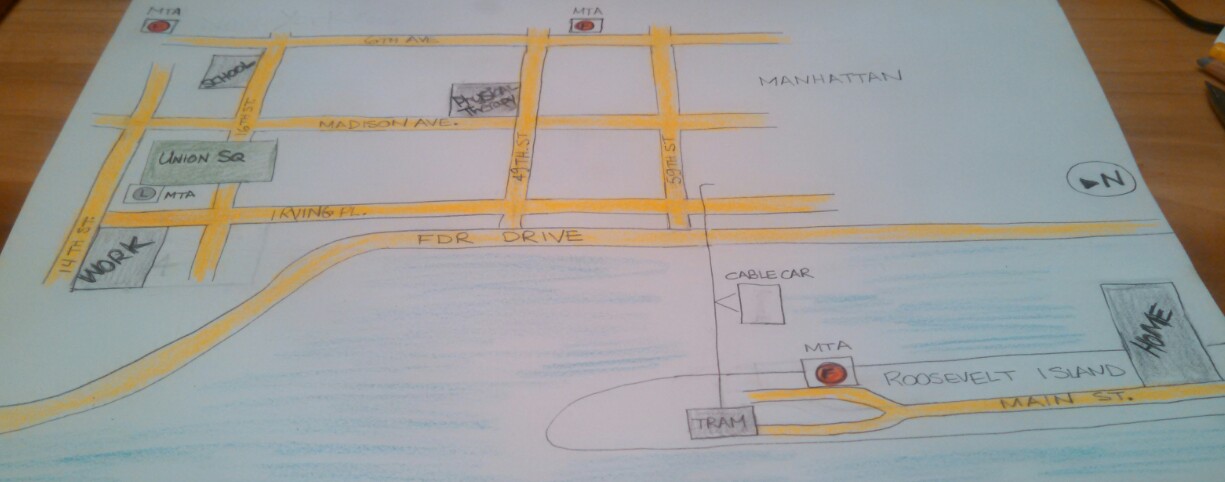 MTA
F
MTA
F
6TH AVE
SCHOOL
MANHATTAN
PHYSICAL
THERAPY
16TH ST
MADISON AVE.
49TH ST
59TH ST
UNION SQ
N
L MTA
IRVING PL.
14TH ST.
WORK
FDR DRIVE
CABLE CAR
HOME
MTA
F
ROOSEVELT ISLAND
MAIN ST.
TRAM